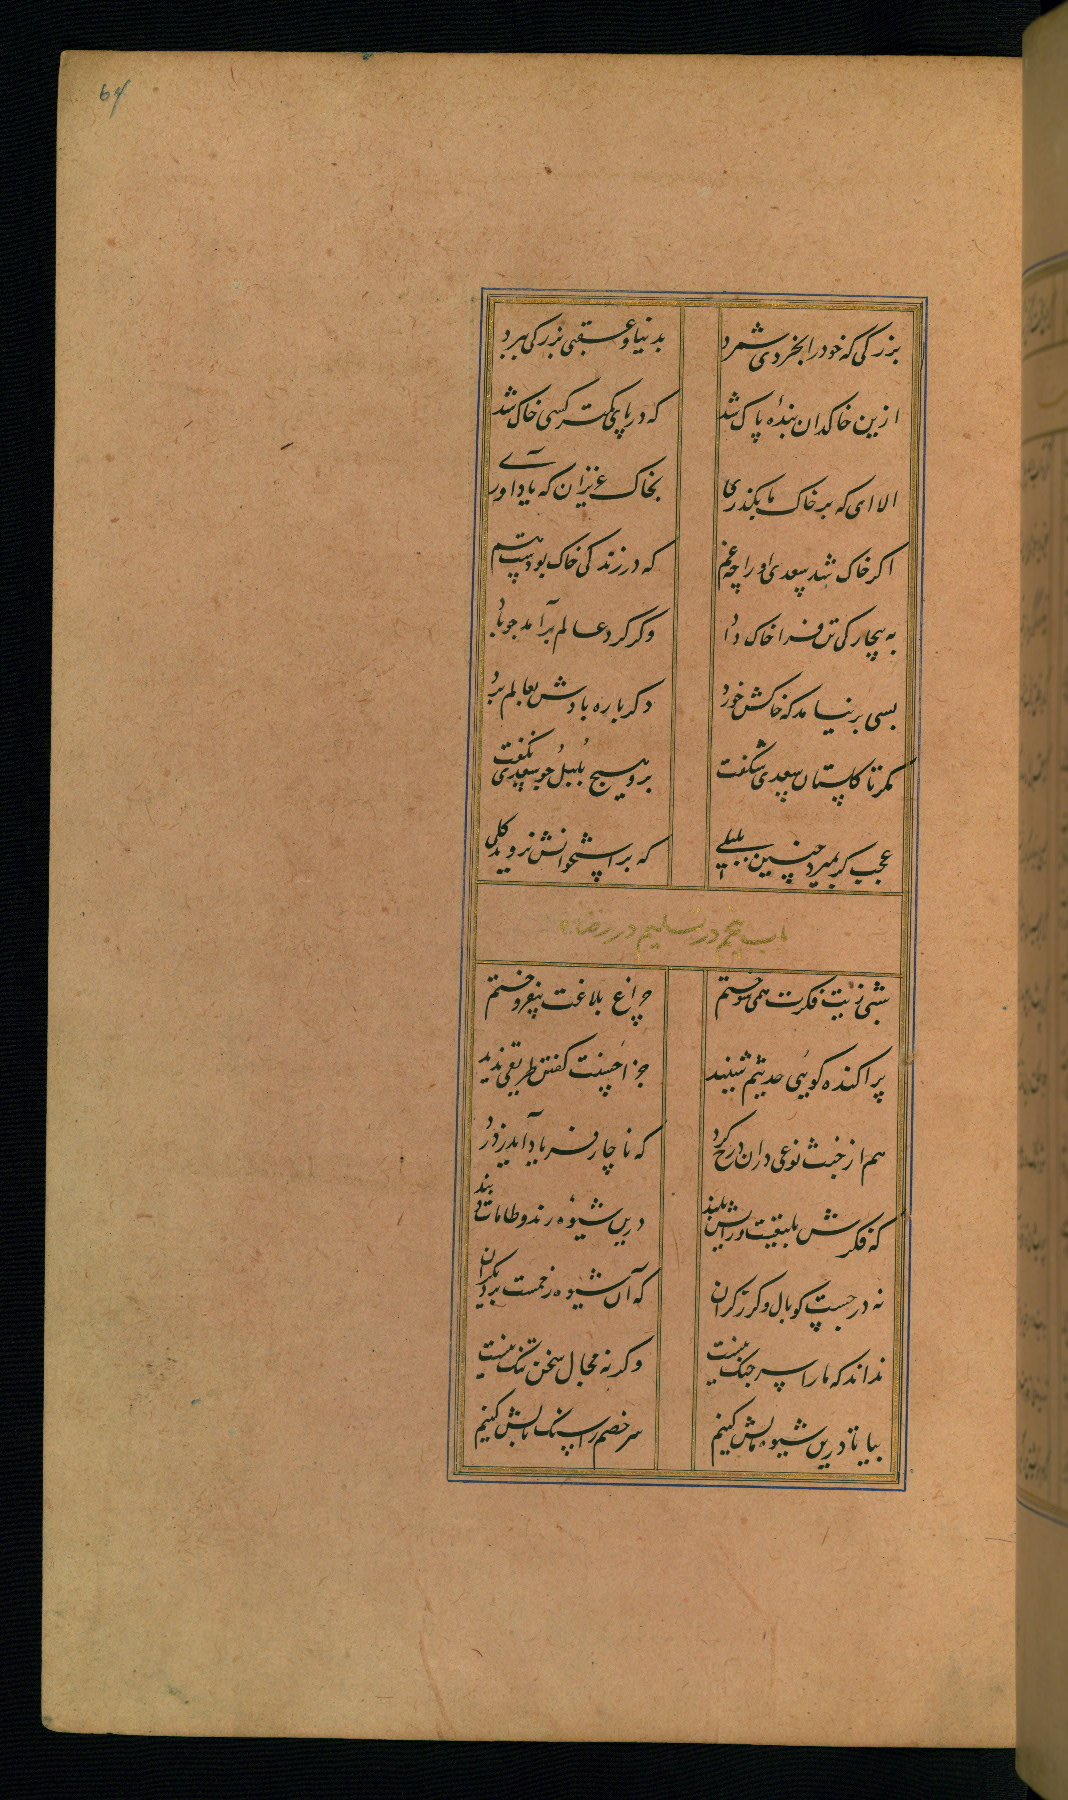 64
بزرگی که خود را بخردی شمرد بدنیا و عقبی بزرگی ببرد
ازین خاکدان بندۀ پاک شد که در پای کمتر کسی خاک شد
الا ای که بر خاک ما بگذری بخاک عزیزان که یاد آوری
اگر خاک شد سعدی او را چه غم که در زندگی خاک بودست هم
به بیچارگی تن فرا خاک داد وگر گرد عالم برآمد چو باد
بسی برنیامد که خاکش خورد دگرباره بادش بعالم برد
مگر تا گلستان سعدی شگفت برو هیچ بلبل چو سعدی نگفت
عجب گر بمیرد چنین بلبلی که بر استخوانش نروید گلی
باب پنجم در تسلیم در رضا
شبی زیت فکرت همی سوختم چراغ بلاغت بیفروختم
پراکنده گویی حدیثم شنید جز احسنت گفتن طریقی ندید
هم از خبث نوعی دران درج کرد که ناچار فریاد آید ز درد
که فکرش بلیغست و رایش بلند درین شیوۀ زهد و طامات و پند
نه در خست و کوپال و گرز گران که آن شیوه ختمست بر دیگران
نداند که ما را سر جنگ نیست وگرنه مجال سخن تنگ نیست
بیا تا درین شیوه مالش کنیم سر خصم را سنگ بالش کنیم